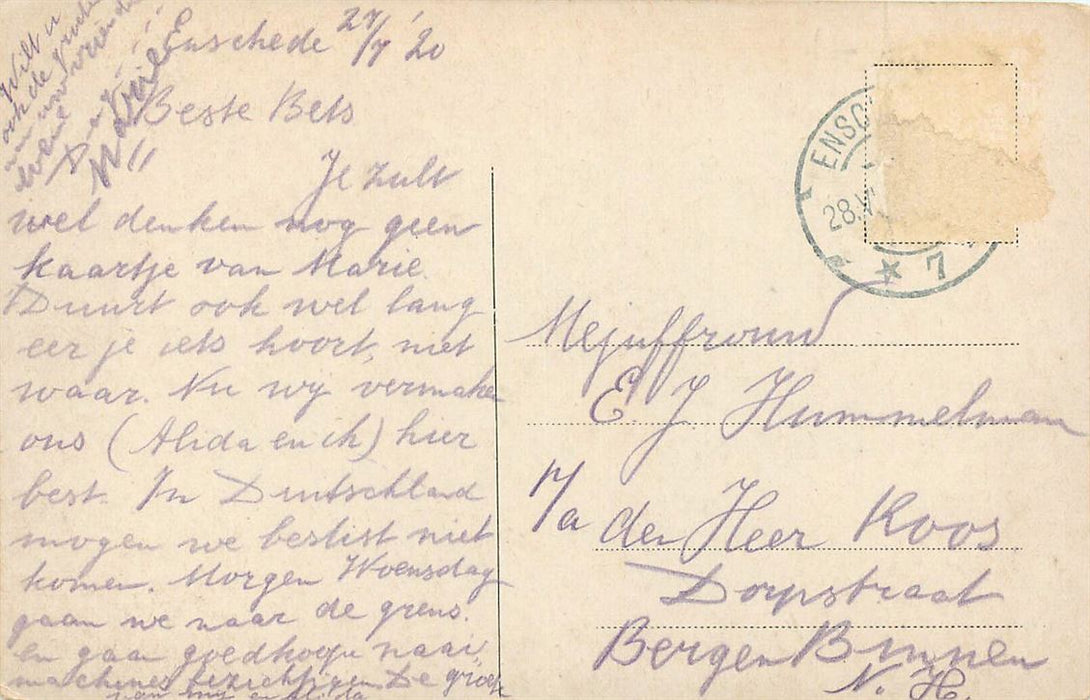 Enschede 27/7 '20
Beste Bets
Je zult
wel denken nog geen
kaartje van Marie.
Duurt ook wel lang
eer je iets hoort, niet
waar. Nu wij vermaken
ons (Alida en ik) hier
best. In Duitschland
mogen we beslist niet
komen. Morgen Woensdag
gaan we naar de grens.
en gaan goedkoope naai
machines bezichtigen. De groet
van mij en Alida
Wilt u
ook de groeten
aan uw vriendin
Dag
Marie
ENSC
28.VI
7
Mejuffrouw
E. J. Hummelman
p/a den Heer Koos
Dorpstraat
Bergen Binnen
N. H.